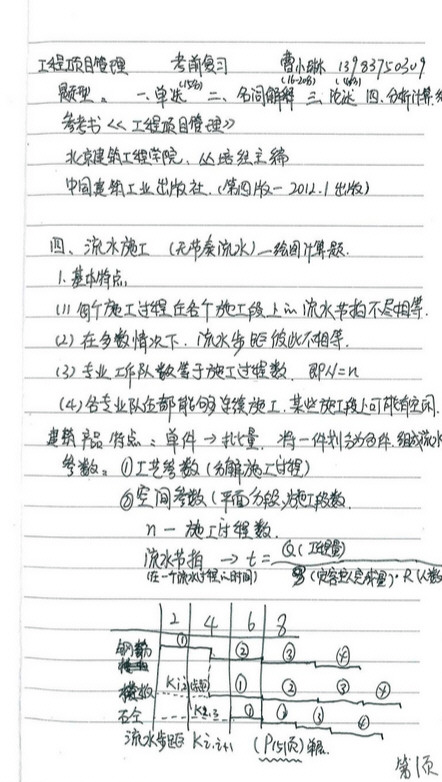 工程项目管理 考前复习 曹小琳 13983750309
(15分) (16-20分)
题型。 一、单选 二、名词解释 三、论述 四、分析计算
参考书《工程项目管理》
北京建筑工程学院、丛培经主编
中国建筑工业出版社.(第四版-2012.1出版)
四、流水施工 (无节奏流水)—绘图计算题.
1.基本特点,
(1) 每个施工过程在各个施工段上的流水节拍不尽相等.
(2) 在多数情况下.流水步距彼此不相等.
(3) 专业工作队数等于施工过程数. 即N=n
(4) 各专业队伍都能够连续施工,某些施工段上可能有空闲.
建筑产品特点:单件→批量. 将一件划分为多件.组成流水
参数。①工艺参数(分解施工过程)
②空间参数(平面分段)施工段数.
n — 施工过程数.
流水节拍 → t= Q(工程量)
(在一个流水过程的时间) (定容量人完成量)·R(人数
2 4 6 8
钢筋 ① ② ③ ④
模板 Ki 步距 ① ② ③ ④
石仝 K2.3 ① ② ③ ④
流水步距 Ki,i+1 (P151页)
第1页